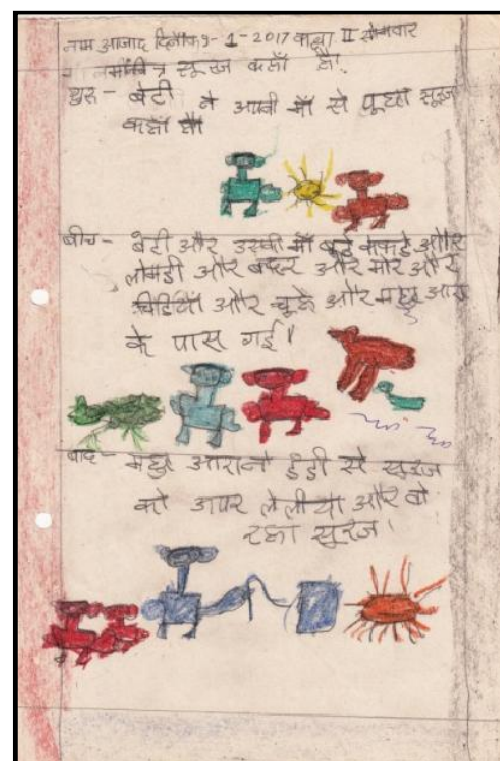 नाम आजाद दिनांक 9-1-2017 कक्षा II सोमवार
सूरज कहाँ है.
शुरू - बेटी ने अपनी माँ से पूछा सूरज
कहाँ है
बीच - बेटी और उसकी माँ बुढे और
लोमडी और बन्दर और मोर और
चिडियाँ और चूहे और
के पास गई।
बाद - से सूरज
को लेलीया और वो
रहा सूरज।